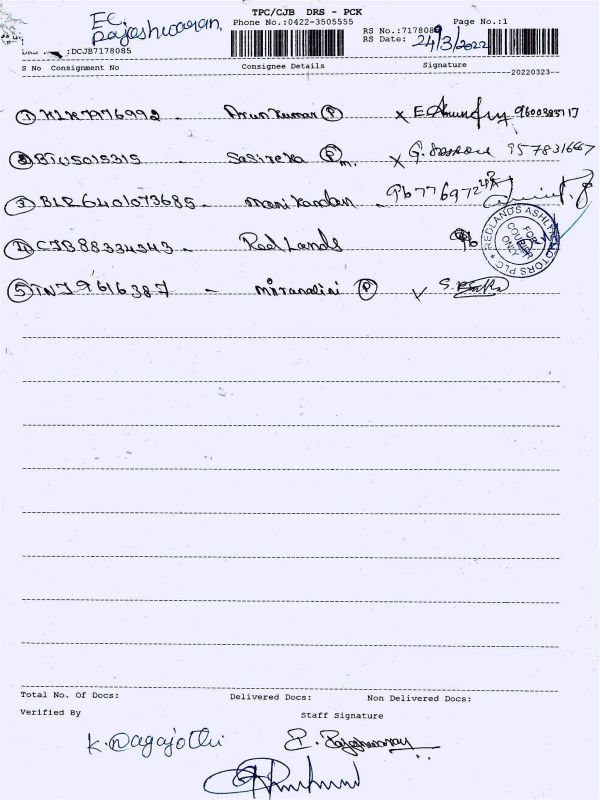 EC
Rajeshwaran.
TPC/CJB DRS - PCK
Phone No.:0422-3505555
Page No.:1
RS No.:7178085
RS Date: 24/3/2022
DRS :DCJB7178085
S No Consignment No Consignee Details Signature
20220323
1 KLK7976992 - Arun Kumar P x 9600385717
2 BTU5015315 - Sasireka P x G. 957831667
3 BLR6401073685 - Manikandan -
REDLANDS ASHLYN MOTORS PLC
FOR COURIER ONLY
4 CJB88334343 - Red Lands
5 TNJ9616387 - Miranalini P
Total No. Of Docs: Delivered Docs: Non Delivered Docs:
Verified By Staff Signature
K. Nagajothi P. Rajeshwaran